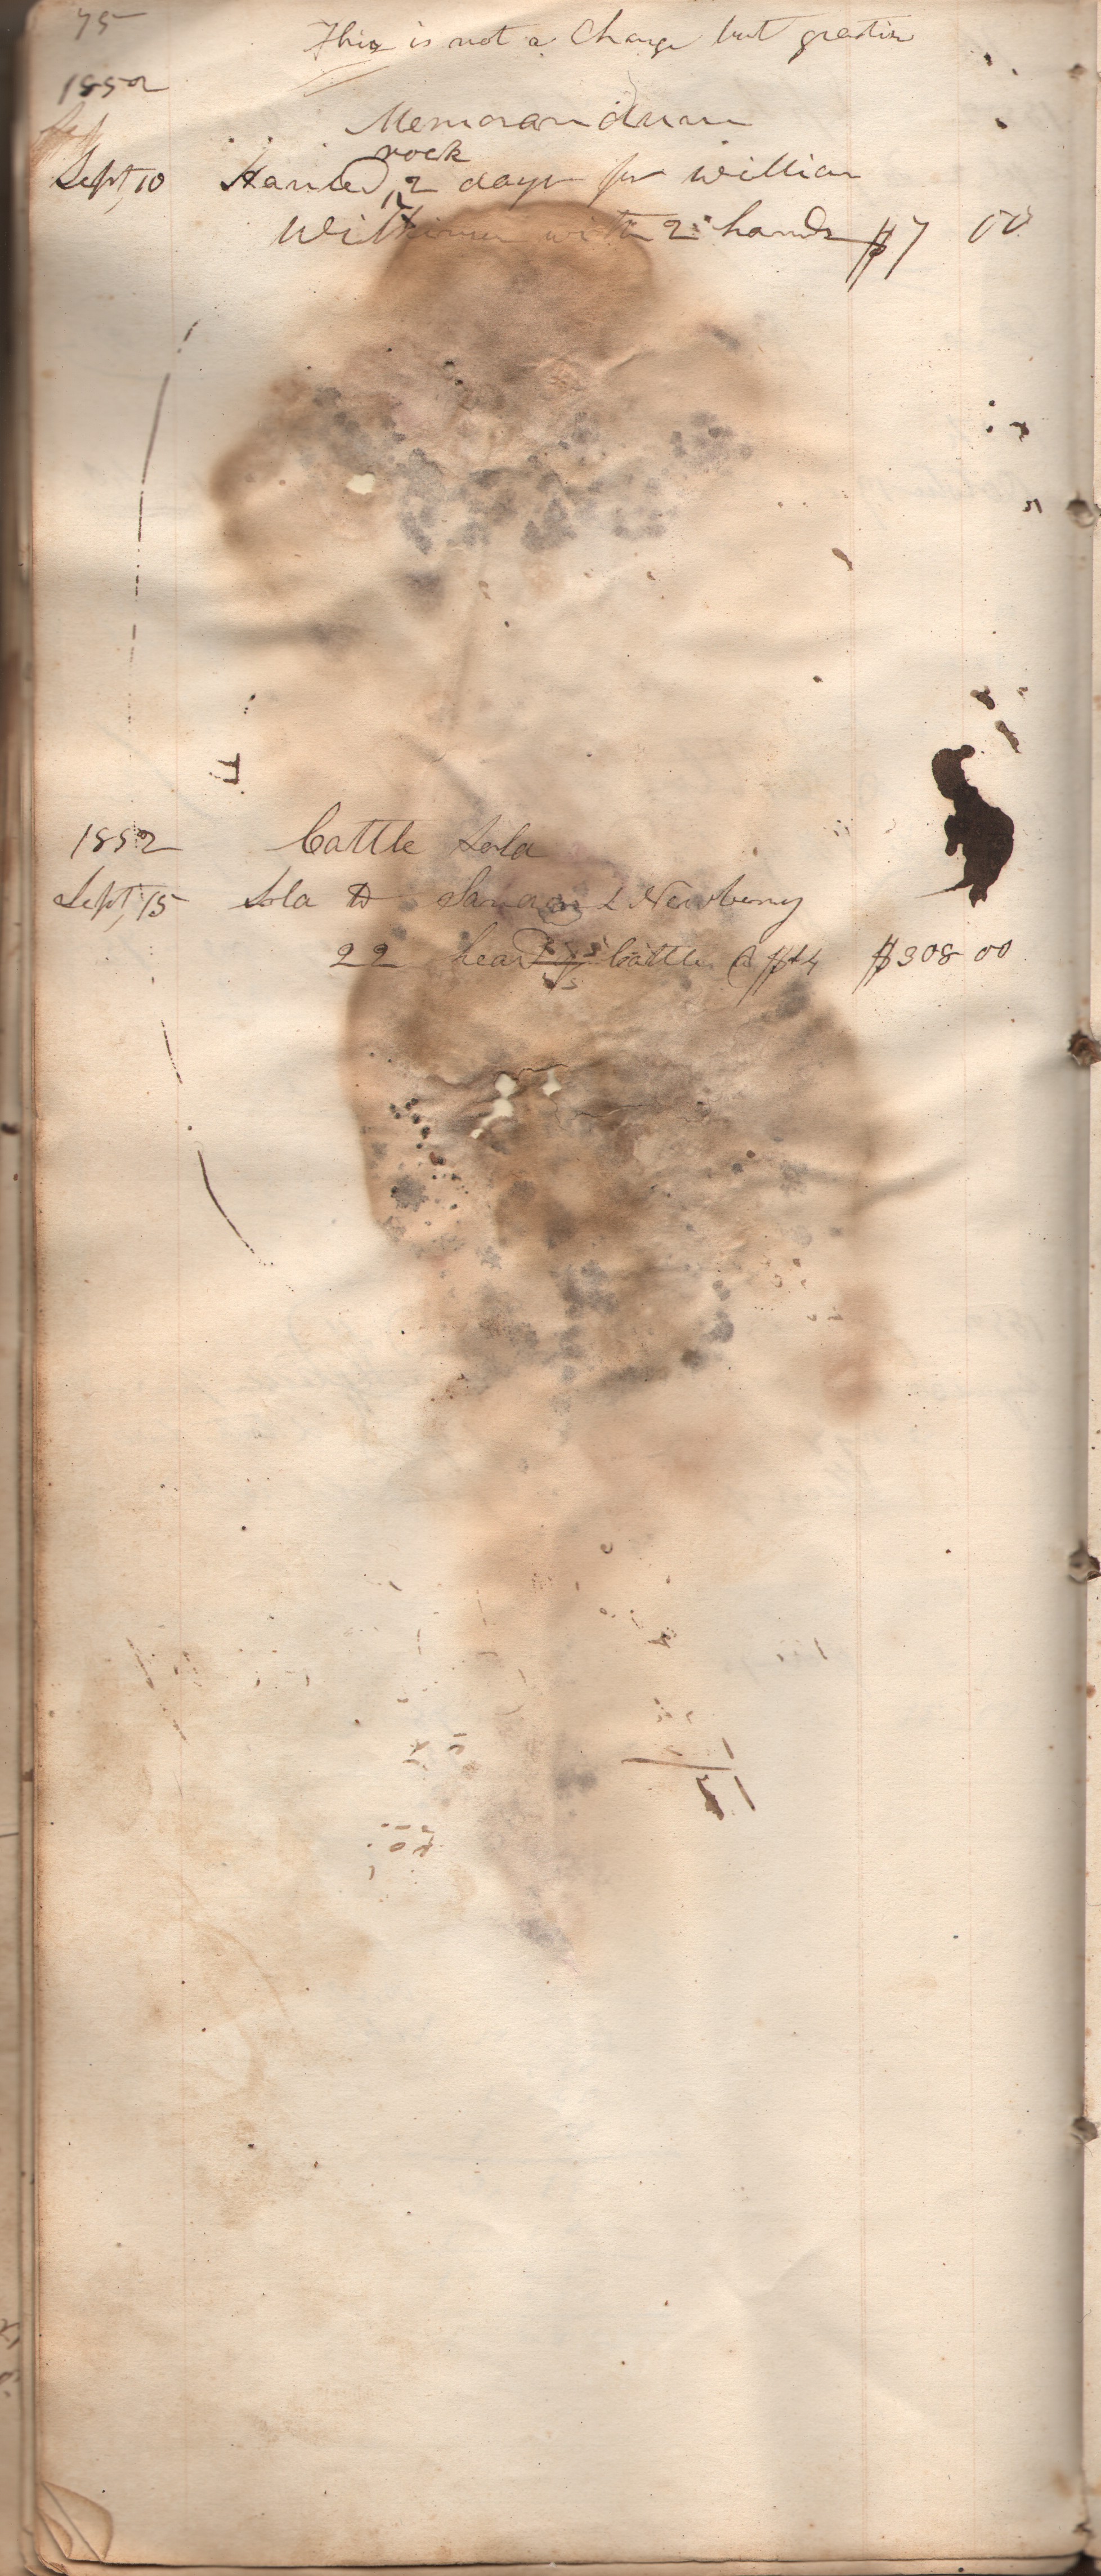 75
This is not a Charge but gratis
1852
Memorandum
rock
Sept, 10 Hauled 2 days for William
with 2 hands $7 00
1852 Cattle Sold
Sept, 15 Sold to & Newberry
22 head of Cattle @ $14 $308 00